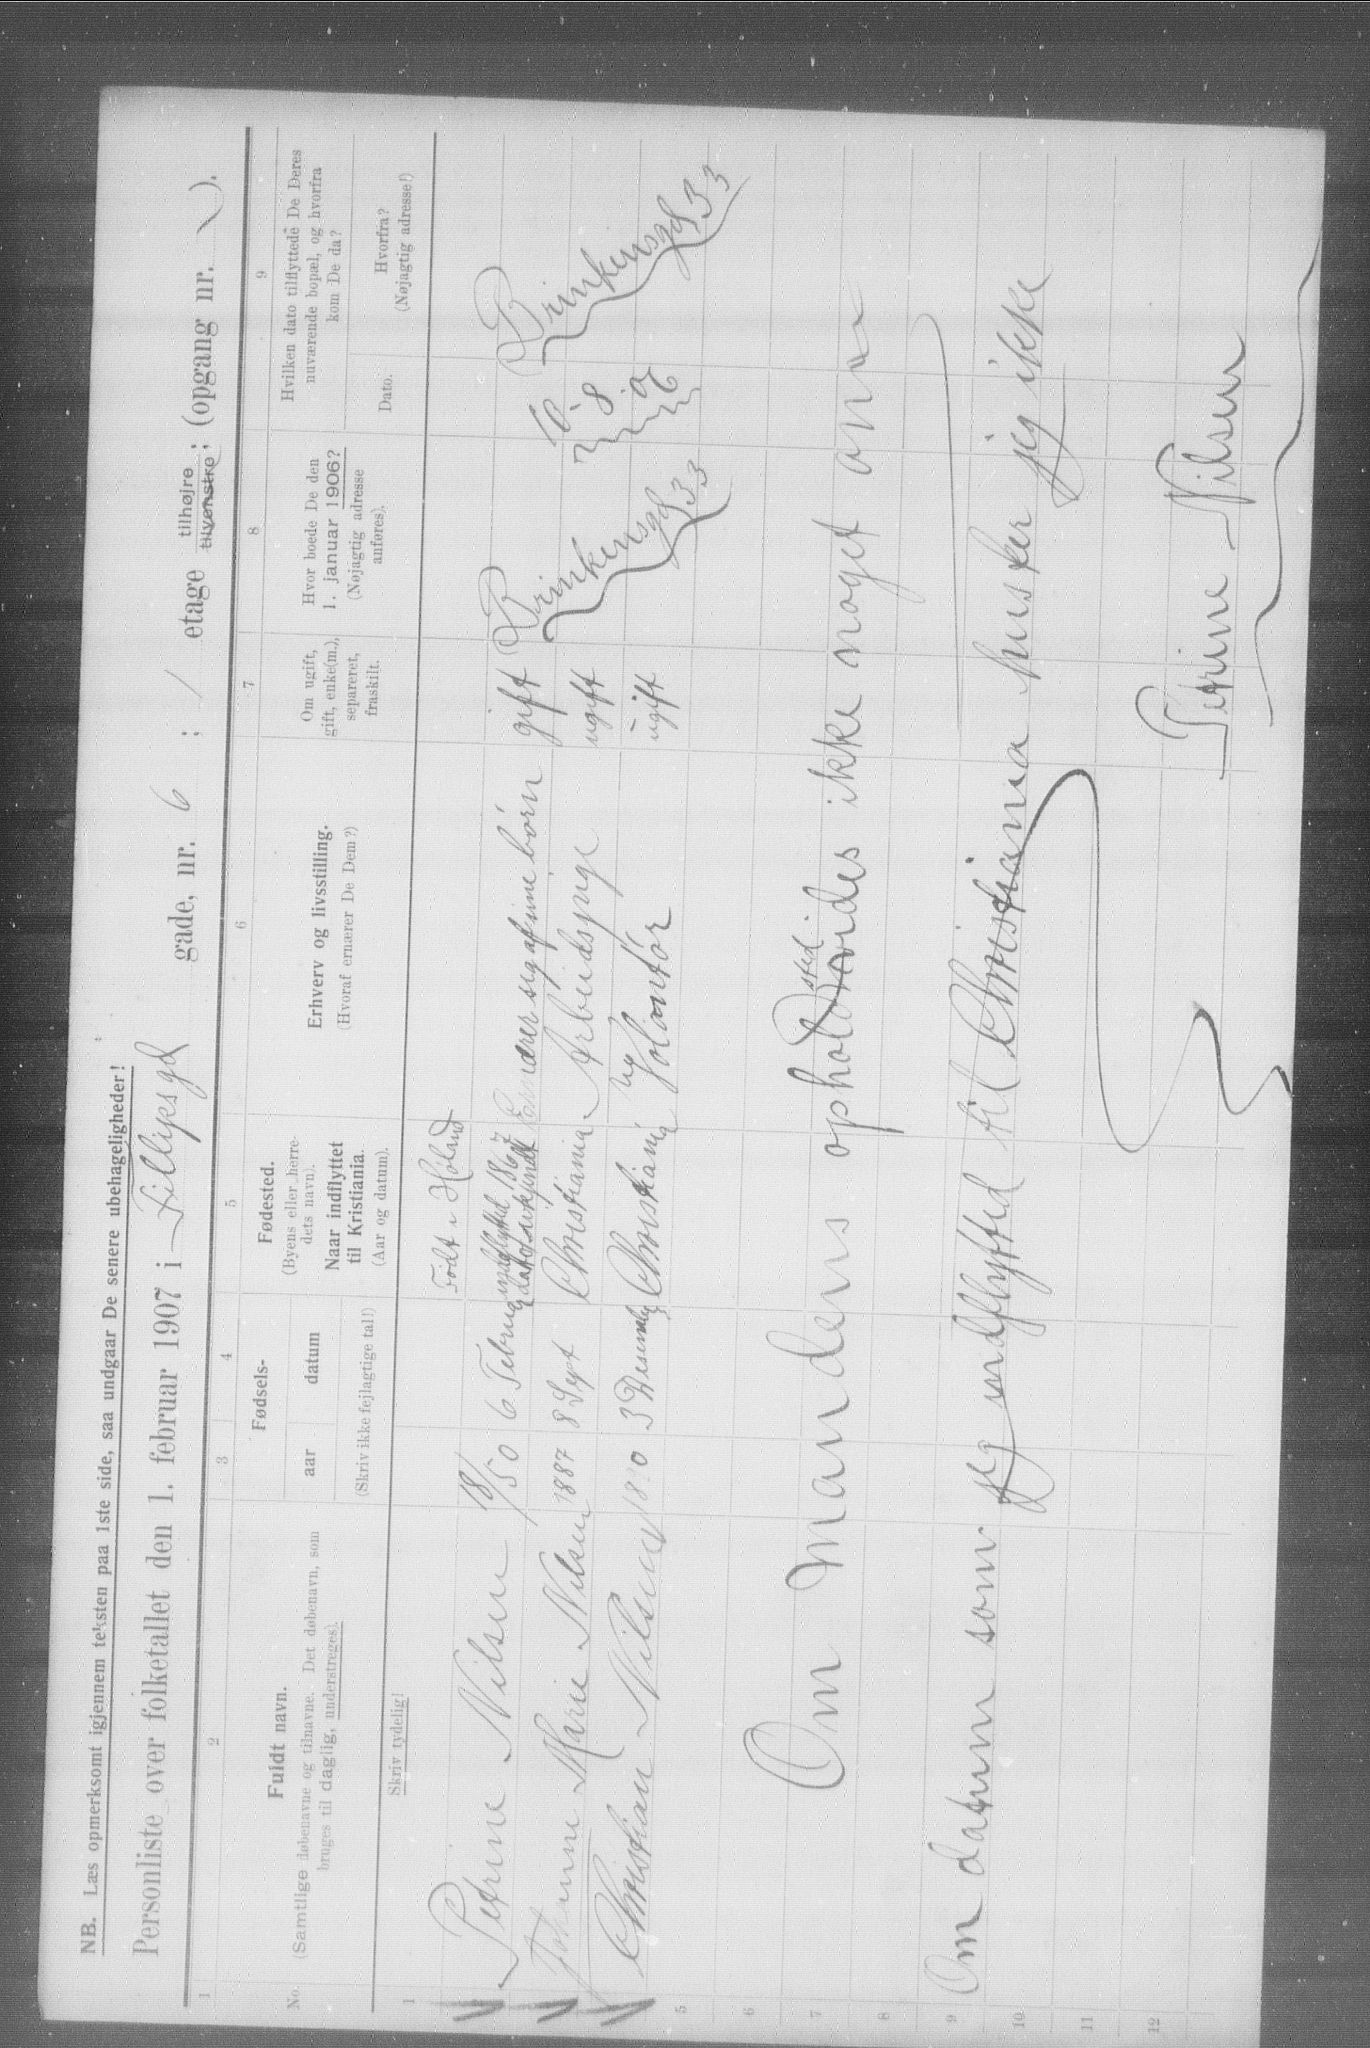 NB. Læs opmerksomt igjennem teksten paa 1ste side, saa undgaar De senere ubehageligheder!
Personliste over folketallet den 1. februar 1907 i Fillipsgd gade, nr. 6 ; 1 etage tilhøjre tilvenstre ; (opgang nr. ).
1 2 3 4 5 6 7 8 9
No.
Fuldt navn.
(Samtlige døbenavne og tilnavne. Det døbenavn, som
bruges til daglig, understreges).
Skriv tydelig!
Fødsels-
aar datum
(Skriv ikke fejlagtige tal!)
Fødested.
(Byens eller herre-
dets navn).
Naar indflyttet
til Kristiania.
(Aar og datum).
Erhverv og livsstilling.
(Hvoraf ernærer De Dem?)
Om ugift,
gift, enke(m.),
separeret,
fraskilt.
Hvor boede De den
1. januar 1906?
(Nøjagtig adresse
anføres).
Hvilken dato tilflyttede De Deres
nuværende bopæl, og hvorfra
kom De da?
Dato.
Hvorfra?
(Nøjagtig adresse!)
1
Født i Høland
Petrine Nilsen 18/50 6 Februar indflyttet 1867 dato ubekjendt Ernærer sig af sine børn gift Brinkensgd 33 6/8 06 Brinkensgd 33
Johanne Marie Nilsen 1887 8 Sept Christiania Arbeidspige ugift
Christian Nilsen 3 Desember Christiania Volontør ugift
5
6
7 Om Mandens opholdsted vides ikke noget om
8
9 Om datum som jeg indflytted til Christiania husker jeg ikke
10
11
12 Petrine Nilsen